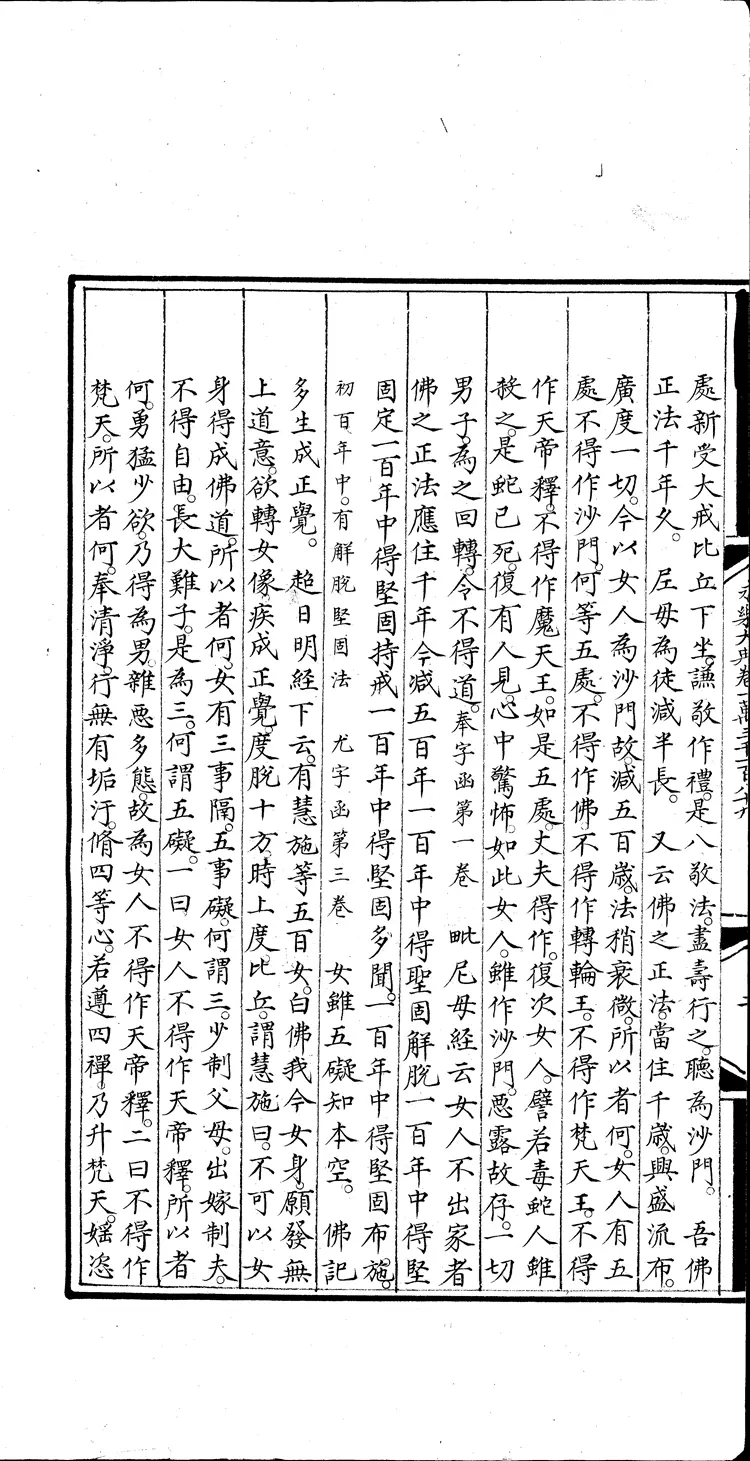 處新受大戒比丘下坐。謙敬作禮。是八敬法。盡壽行之。聽為沙門。　吾佛
正法千年久。　尼母為徒減半長。　又云佛之正法。當住千歲。興盛流布。
廣度一切。今以女人為沙門故。減五百歲。法稍衰微。所以者何。女人有五
處不得作沙門。何等五處。不得作佛。不得作轉輪王。不得作梵天王。不得
作天帝釋。不得作魔天王。如是五處。丈夫得作。復次女人。譬若毒蛇人雖
殺之。是蛇已死。復有人見。心中驚怖。如此女人。雖作沙門。惡露故存。一切
男子。為之回轉。令不得道。奉字函第一卷　毗尼母經云女人不出家者
佛之正法應住千年今減五百年一百年中得聖固解脫一百年中得堅
固定一百年中得堅固持戒一百年中得堅固多聞。一百年中得堅固布施。
初百年中。有解脫堅固法　尤字函第三卷　女雖五礙知本空。　佛記
多生成正覺。　超日明經下云。有慧施等五百女。白佛我今女身。願發無
上道意。欲轉女像。疾成正覺。度脫十方。時上度比丘。謂慧施曰。不可以女
身得成佛道。所以者何。女有三事隔。五事礙。何謂三。少制父母。出嫁制夫。
不得自由。長大難子。是為三。何謂五礙。一曰女人不得作天帝釋。所以者
何。勇猛少欲。乃得為男。雜惡多態。故為女人不得作天帝釋。二曰不得作
梵天。所以者何。奉清淨。行無有垢汙。脩四等心。若遵四禪。乃升梵天。婬恣